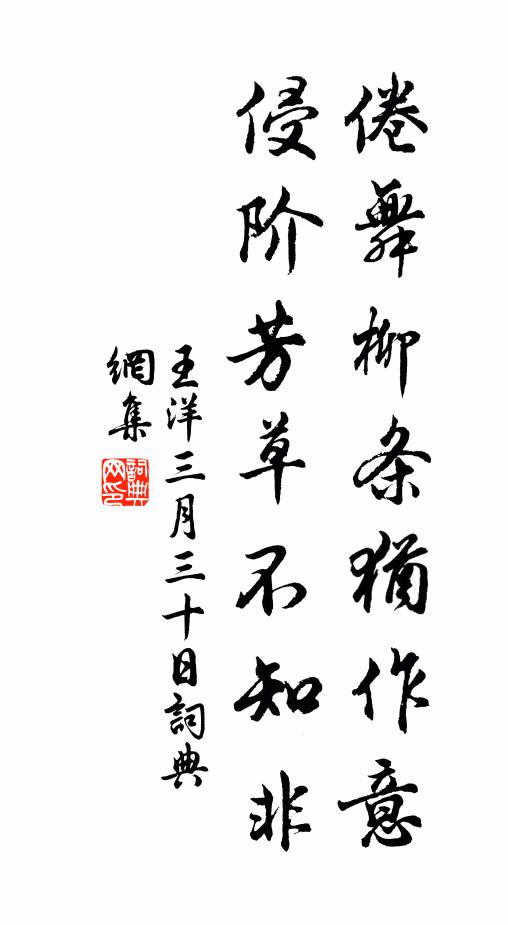 倦舞柳条犹作意
侵阶芳草不知非
王洋三月三十日詞典
網集
詞典网印